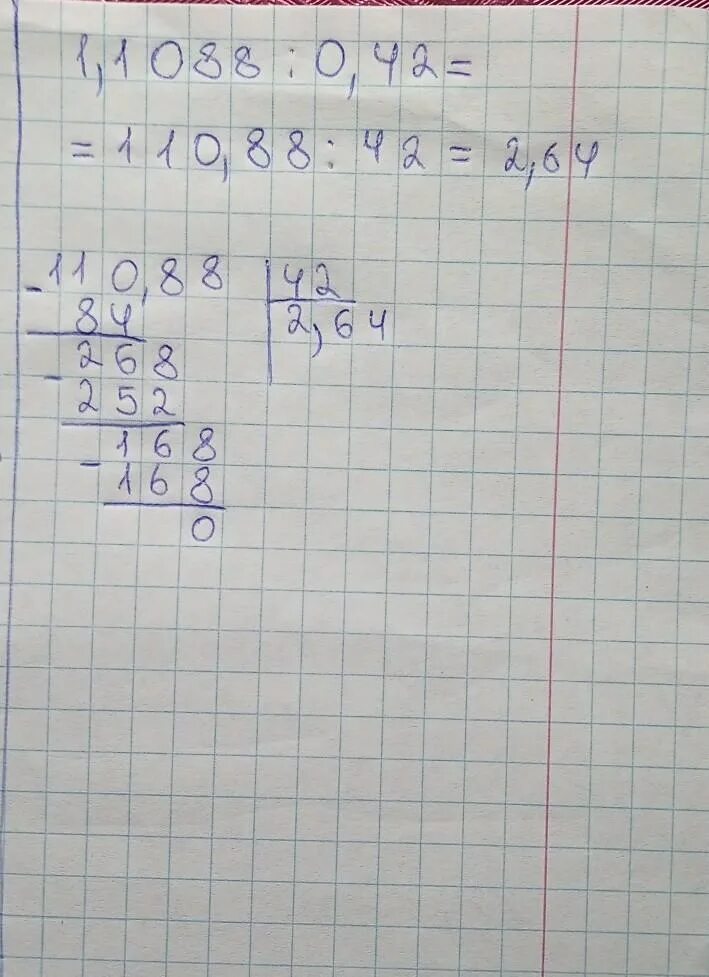 1,1088 : 0,42 =
= 110,88 : 42 = 2,64
- 110,88 | 42
84 | 2,64
- 268
252
- 168
168
0